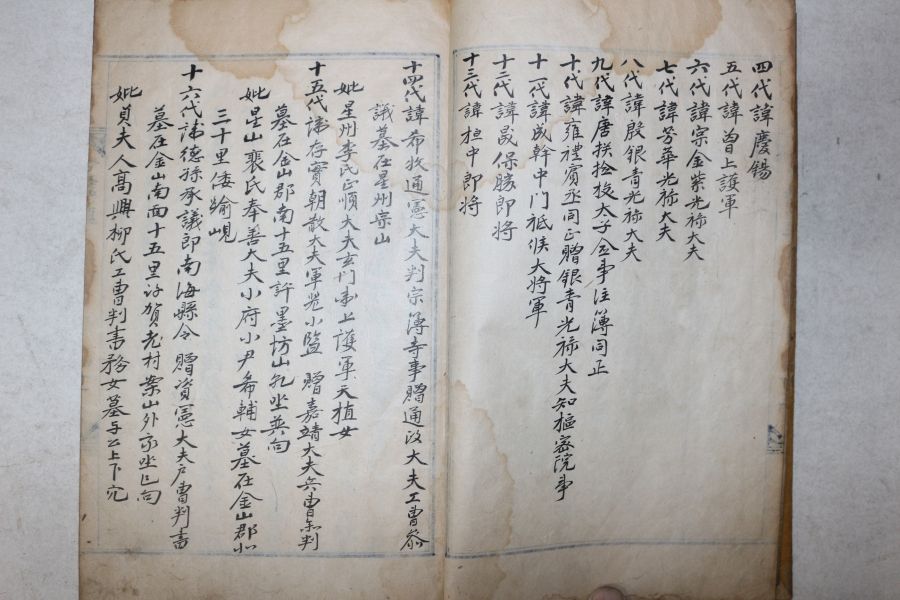 四代諱慶錫
五代諱曾上護軍
六代諱宗金紫光祿大夫
七代諱芳華光祿大夫
八代諱殷銀青光祿大夫
九代諱唐撿挍太子詹事注簿同正
十代諱雍禮賓丞同正贈銀青光祿大夫知樞密院事
十一代諱成幹中門袛候大將軍
十二代諱晟保勝郎將
十三代諱桓中郎將
十四代諱希牧通憲大夫判宗簿寺事贈通政大夫工曹叅
議墓在星州
妣星州李氏正順大夫左右門衛上護軍天植女
十五代諱存實朝散大夫軍器小監 贈嘉靖大夫兵曹叅判
墓在金山郡南十五里許墨坊山乳坐巽向
妣星山裵氏奉善大夫小府小尹希輔女墓在金山郡北
三十里倭踰峴
十六代諱德孫承議郎南海縣令 贈資憲大夫戶曹判書
墓在金山南面十五里許賀老村案山外亥坐巳向
妣貞夫人高興柳氏工曹判書務女墓与公上下穴